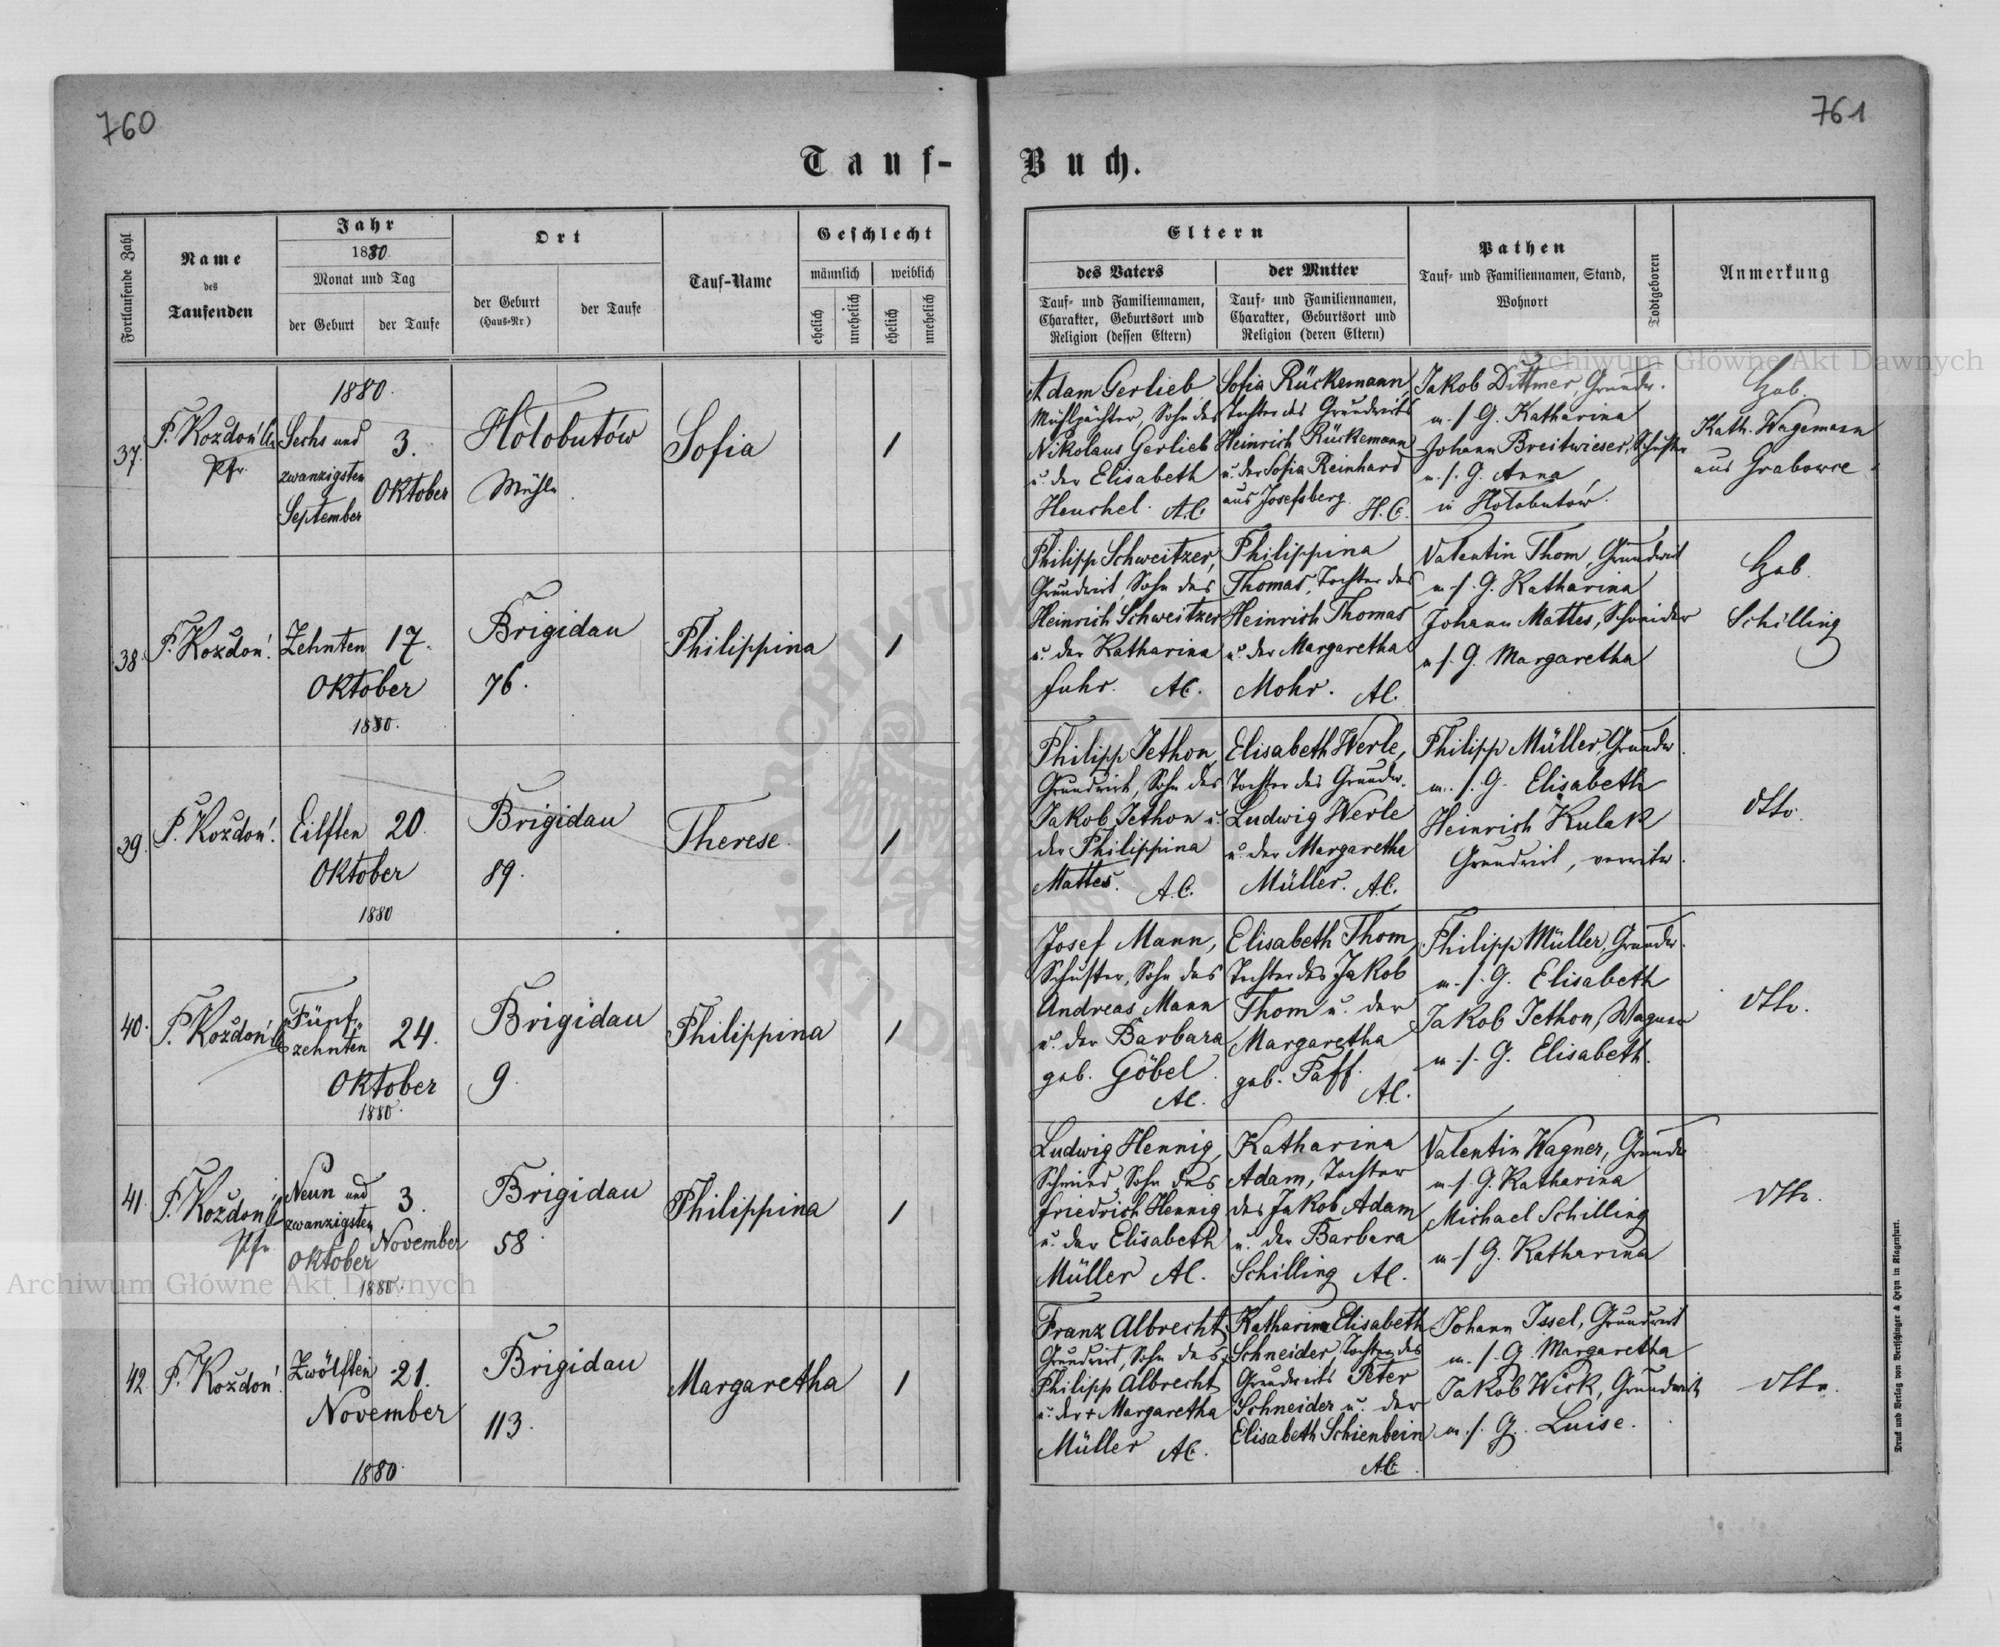 760
761
Tauf-Buch.
Fortlaufende Zahl
Name
des
Taufenden
Jahr
1880.
Monat und Tag
der Geburt
der Taufe
Ort
der Geburt
(Haus-Nr)
der Taufe
Tauf-Name
Geschlecht
männlich
weiblich
ehelich
unehelich
ehelich
unehelich
Eltern
des Vaters
der Mutter
Tauf- und Familiennamen,
Charakter, Geburtsort und
Religion (dessen Eltern)
Tauf- und Familiennamen,
Charakter, Geburtsort und
Religion (deren Eltern)
Pathen
Tauf- und Familiennamen, Stand,
Wohnort
Todtgeboren
Anmerkung
Archiwum Główne Akt Dawnych
37.
F. Kozdoń
Pfr.
1880.
Sechs und
zwanzigsten
September
3.
Oktober
Hołobutów
Mühle
Sofia
1
Adam Gerlieb,
Mühlpächter, Sohn des
Nikolaus Gerlieb
u. der Elisabeth
Henchel. A.C.
Sofia Rückemann,
Tochter des Grundwirts
Heinrich Rückemann
u. der Sofia Reinhard
aus Josefsberg. H.C.
Jakob Dittmer, Grundw.
m. s. G. Katharina
Johann Breitwieser, Schuster
m. s. G. Anna
in Hołobutów.
Heb.
Kath. Wagemann
aus Grabowce.
38.
F. Kozdoń.
Zehnten
Oktober
1880.
17.
Brigidau
76.
Philippina
1
Philipp Schweitzer,
Grundwirt, Sohn des
Heinrich Schweitzer
u. der Katharina
Fuhr. A.C.
Philippina
Thomas, Tochter des
Heinrich Thomas
u. der Margaretha
Mohr. A.C.
Valentin Thom, Grundwirt
m. s. G. Katharina
Johann Mattes, Schneider
m. s. G. Margaretha
Heb.
Schilling
39.
F. Kozdoń.
Eilften
Oktober
1880
20.
Brigidau
89.
Therese.
1
Philipp Jethon,
Grundwirt, Sohn des
Jakob Jethon u.
der Philippina
Mattes. A.C.
Elisabeth Werle,
Tochter des Grundw.
Ludwig Werle
u. der Margaretha
Müller. A.C.
Philipp Müller, Grundw.
m. s. G. Elisabeth
Heinrich Kulak
Grundwirt, verwitw.
dtto.
40.
F. Kozdoń
Fünf
zehnten
Oktober
1880.
24.
Brigidau
9.
Philippina
1
Josef Mann,
Schuster, Sohn des
Andreas Mann
u. der Barbara
geb. Göbel.
A.C.
Elisabeth Thom,
Tochter des Jakob
Thom u. der
Margaretha
geb. Paff.
A.C.
Philipp Müller, Grundw.
m. s. G. Elisabeth
Jakob Jethon, Wagner
m. s. G. Elisabeth.
dtto.
41.
F. Kozdoń
Pfr
Neun und
zwanzigsten
Oktober
1880.
3.
November
Brigidau
58.
Philippina
1
Ludwig Hennig,
Schmied, Sohn des
Friedrich Hennig
u. der Elisabeth
Müller A.C.
Katharina
Adam, Tochter
des Jakob Adam
u. der Barbara
Schilling A.C.
Valentin Wagner, Grundw
m. s. G. Katharina
Michael Schilling
m. s. G. Katharina
dtto.
42.
F. Kozdoń.
Zwölften
November
1880.
21.
Brigidau
113.
Margaretha
1
Franz Albrecht,
Grundwirt, Sohn des
Philipp Albrecht
u. der + Margaretha
Müller A.C.
Katharina Elisabeth
Schneider, Tochter des
Grundwirts Peter
Schneider u. der
Elisabeth Schienbein
A.C.
Johann Issel, Grundwirt
m. s. G. Margaretha
Jakob Wick, Grundwirt
m. s. G. Luise.
dtto.
Archiwum Główne Akt Dawnych
Druck und Verlag von Bertschinger & Heyn in Klagenfurt.